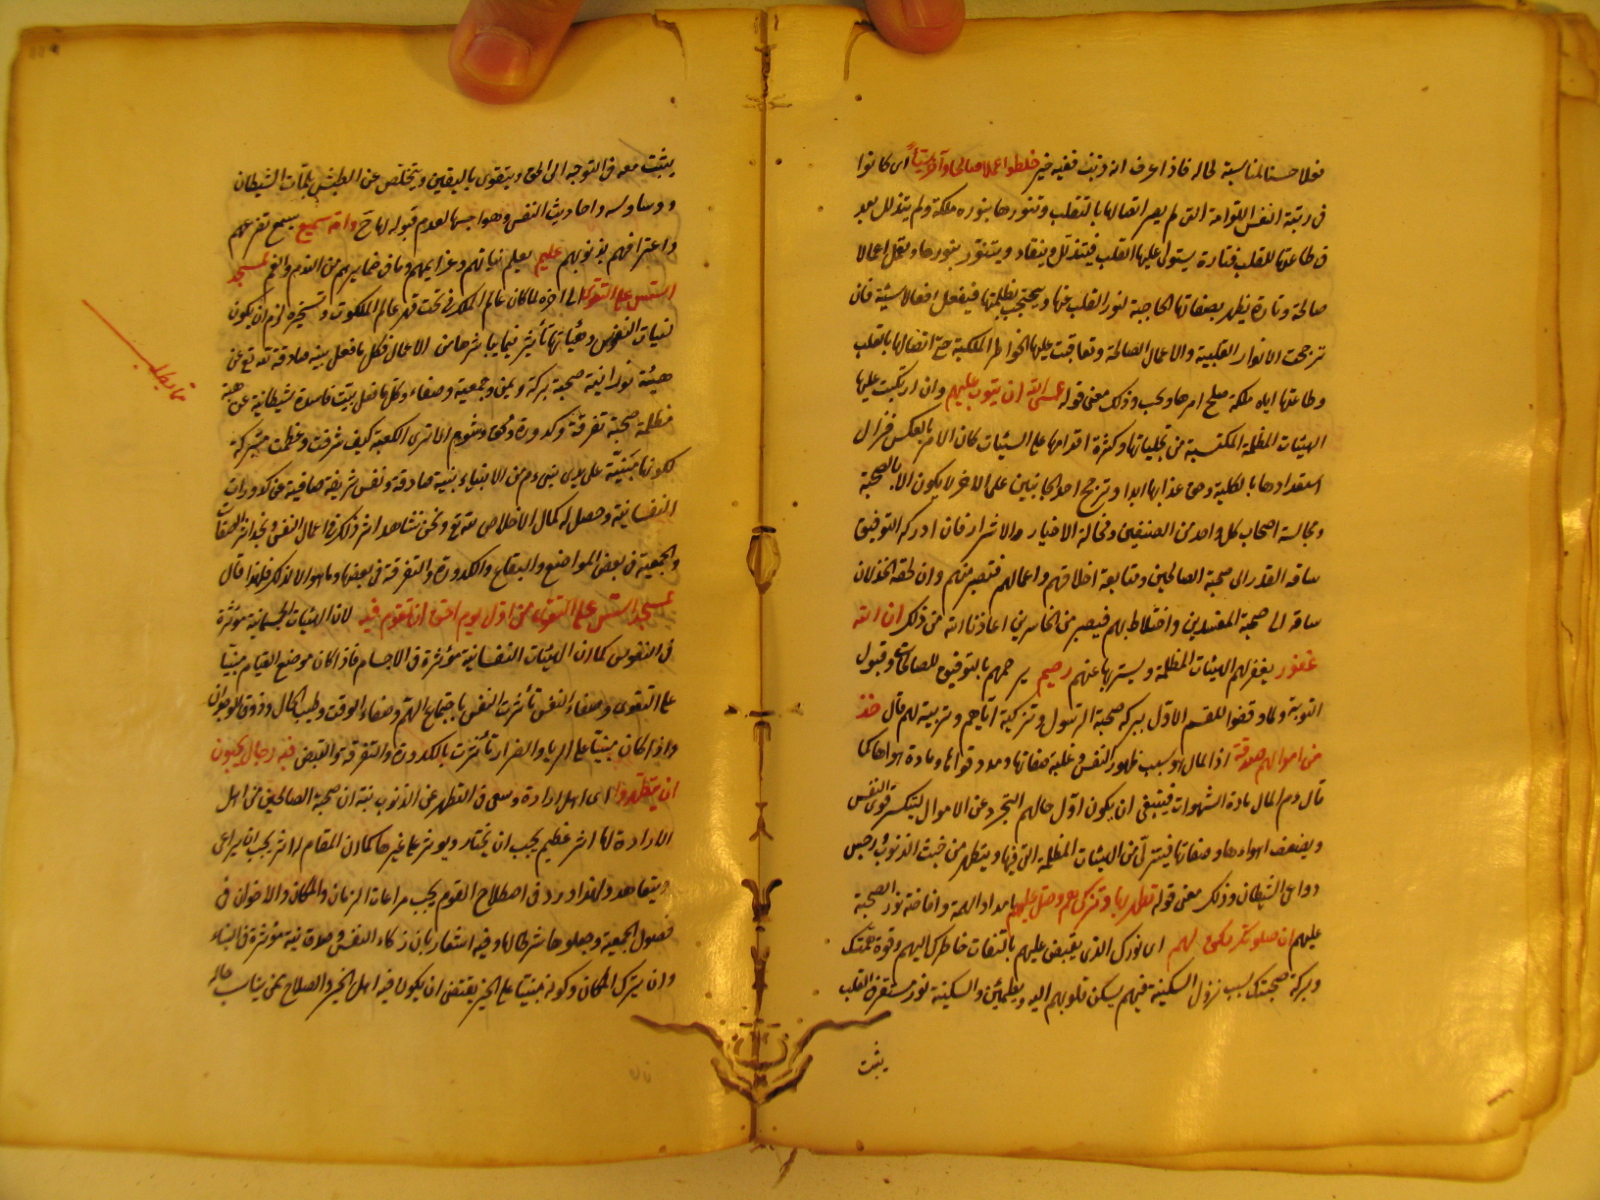 فعلا حسنا لمناسبة لحاله فاذا عرف انه ذنب ففيه خير خلطوا عملا صالحا وآخر سيئاً اى كانوا
فى رتبة النفس اللوامة التى لم يصر اتصالها بالقلب وتنورها بنوره ملكة ولم يتذلل بعد
فى طاعتها للقلب فتارة يستولى عليها القلب فيتذلل وينقاد ويتنور بنورها ويعمل اعمالا
صالحة وتارة يظهر بصفاتها الحاجبة لنور القلب عنها ويحتجب بظلمتها فيفعل افعالا سيئة فان
ترجحت الانوار القلبية والاعمال الصالحة وتعاقبت عليها الخواطر الملكية حتى اتصالها بالقلب
وطاعتها اياه ملكة صلح امرها ونجت وذلك معنى قوله عسى الله ان يتوب عليهم وان ارتكبت عليها
الهيئات المظلمة المكتسبة من وكثرة اقدامها على السيئات كان الامر بالعكس فزال
استعدادها بالكلية وحق عذابها ابدا وترجح احد الجانبين على الاخر لا يكون الا بالصحبة
ومجالسة اصحاب كل واحد من الصنفين ومخالة الاخيار والاشرار فان ادركه التوفيق
ساقه القدر الى صحبة الصالحين ومتابعة اخلاقهم واعمالهم فتصير منهم وان لحقه الخذلان
ساقه الى صحبة المفسدين واختلاط بهم فيصير من الخاسرين اعاذنا الله من ذلك ان الله
غفور يغفر لهم الهيئات المظلمة ويسترها عنهم رحيم يرحمهم بالتوفيق للصالحات وقبول
التوبة ولما وقفوا للقسم الاول ببركة صحبة الرسول وتزكية اياهم وتربية لهم قال خذ
من اموالهم صدقة اذ المال هو سبب ظهور النفس وغلبة صفاتها ومدد قواها ومادة هواها كما
قال عم المال مادة الشهوات فينبغى ان يكون اول حالهم التجرد عن الاموال لتنكسر قوى النفس
ويضعف اهواءها وصفاتها فيتزكى من الهيئات المظلمة التى فيها ويتطهر من خبث الذنوب ورجس
دواعى الشيطان وذلك معنى قوله تطهرهم بها وتزكيهم وصل عليهم بامداد الهمة وافاضة نور الصحبة
عليهم ان صلوتك سكن لهم اى نورك الذى يفيض عليهم بالتفات خاطرك اليهم وقوة همتك
وبركة صحبتك سبب نزول السكينة فيهم يسكن قلوبهم اليه ويطمئن والسكينة نور مستقر فى القلب
يثبت
يثبت معه فى التوجه الى الحق ويتقوى باليقين ويتخلص عن الطيش بلمات الشيطان
ووساوسه واحاديث النفس وهواجسها لعدم قبوله لها ح والله سميع يسمع تضرعهم
واعترافهم بذنوبهم عليم يعلم نياتهم وعزائمهم وما فى ضمايرهم من الندم والغم لمسجد
اسس على التقوى الى اخره لما كان عالم الملك فى تحت قهر عالم الملكوت وتسخيره لزم ان يكون
لنيات النفوس وهيئاتها تأثير فيما يباشرها من الاعمال فكل ما فعل بنية صادقة لله تع عن
هيئة نورانية صحبة بركة ويمن وجمعية وصفاء وكل ما فعل بنية فاسدة شيطانية عن هيئة
مظلمة صحبة تفرقة وكدورة ومحق وشوم الا ترى الكعبة كيف شرفت وعظمت متبركة
لكونها مبنية على يدى نبى عم من الانبياء بنية صادقة ونفس شريفة صافية عن كدورات
النفسانية وحصل له كمال الاخلاص لله تع ونحن نشاهد اثر ذلك فى اعمال النفس ونجد اثر الصفا
والجمعية فى بعض المواضع والبقاع والكدورة والتفرقة فى بعضها وما هو الا لذلك فلهذا قال
لمسجد اسس على التقوى من اول يوم احق ان تقوم فيه لان الهيئات الجسمانية مؤثرة
فى النفوس كما ان الهيئات النفسانية مؤثرة فى الاجسام فاذا كان موضع القيام مبنيا
على التقوى وصفاء النفس تأثرت النفس باجتماع الهم وصفاء الوقت وطيب الحال وذوق الوجدان
واذا كان مبنيا على الريا والضرار تأثرت بالكدورة والتفرقة والقبض فيه رجال يحبون
ان يتطهروا اى اهل ارادة وسعى فى التطهر عن الذنوب نبه ان صحبة الصالحين من اهل
الارادة لها اثر عظيم يجب ان يختار ويوثر على غيرها كما ان المقام له اثر يجب ان يراعى
ويتعاهد ولهذا ورد فى اصطلاح القوم يجب مراعات الزمان والمكان والاخوان فى
حصول الجمعية وجعلوها شرطا لها وفيه اشعار بان زكاء النفس وصدق نية مؤثرة فى البناء
وان تبرك المكان وكونه مبنيا على الخير يقتضى ان يكون فيه اهل الخير والصلاح ممن يناسب حاله